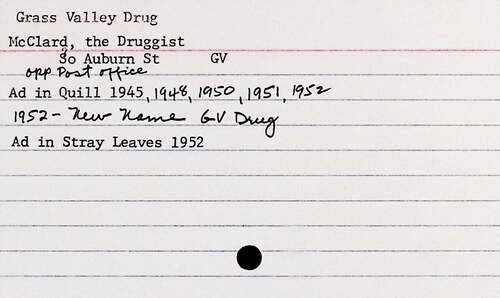 Grass Valley Drug
McClard, the Druggist
So Auburn St GV
opp Post office
Ad in Quill 1945, 1948, 1950, 1951, 1952
1952 - New Name GV Drug
Ad in Stray Leaves 1952